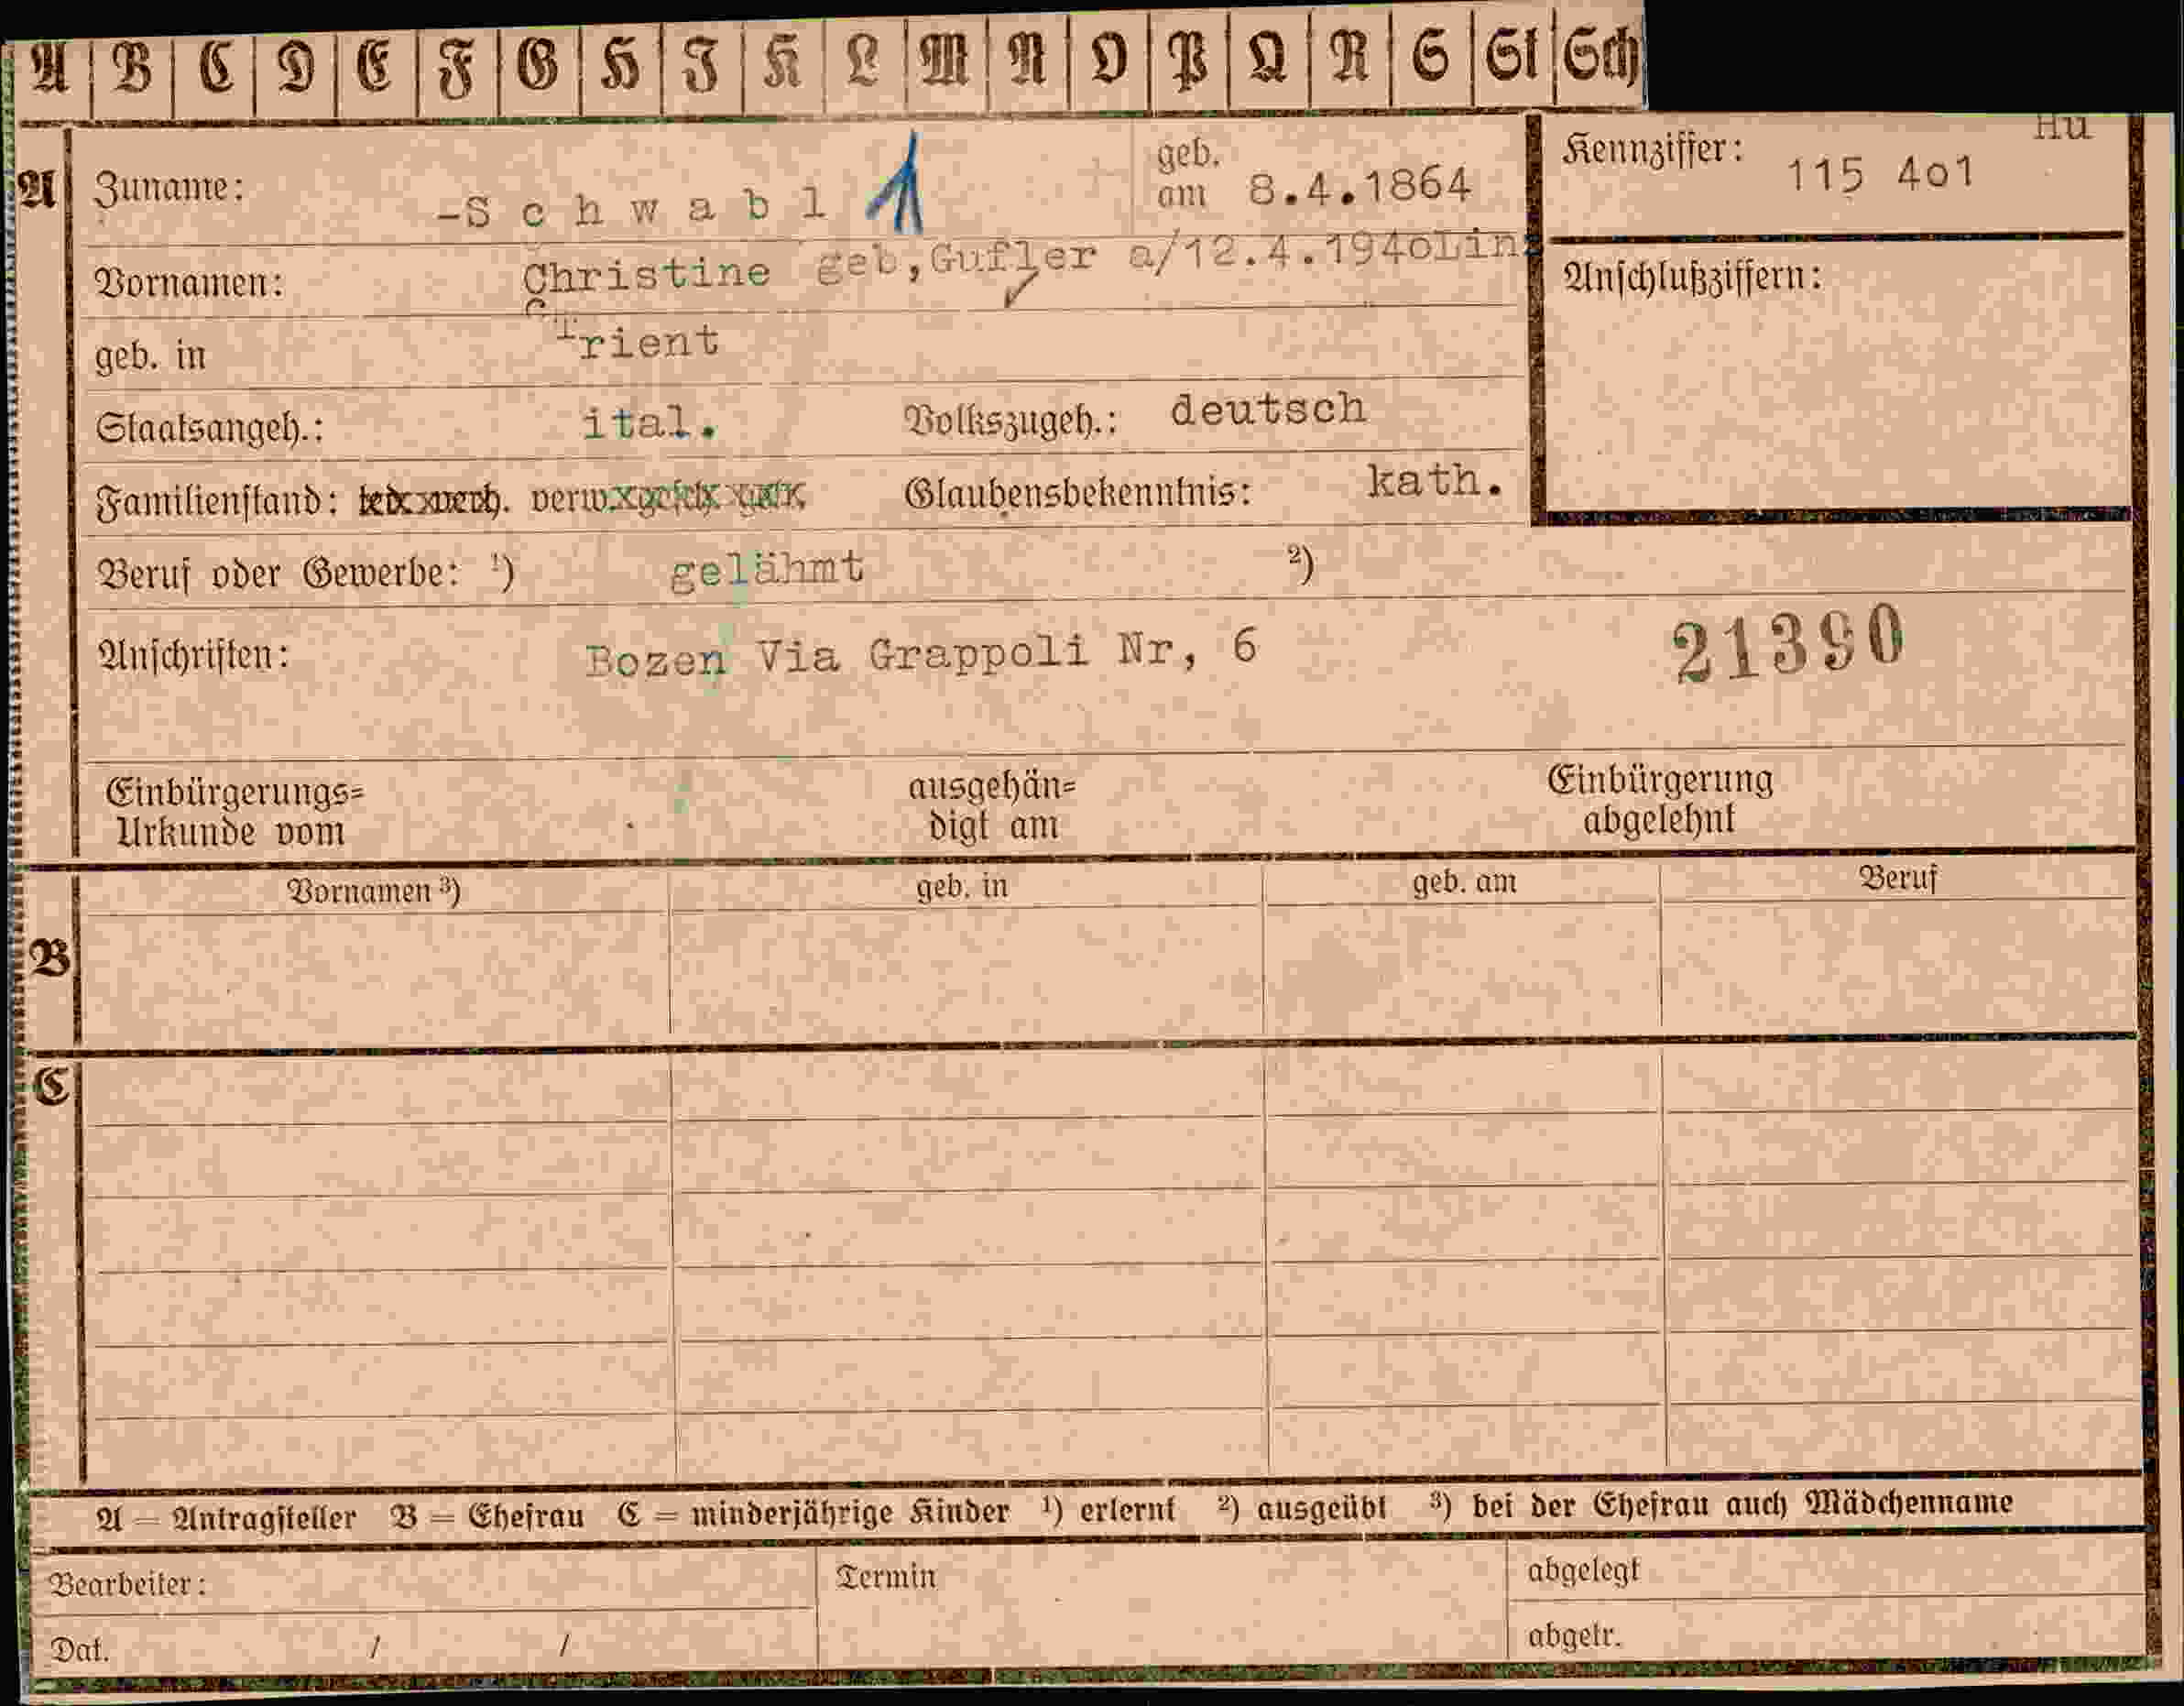 A B C D E F G H I K L M N O P Q R S St Sch
Hu
A Zuname: -S c h w a b l geb. am 8.4.1864 Kennziffer: 115 4o1
Vornamen: Christine geb,Gufler a/12.4.194oLinz
Anschlußziffern:
geb. in Trient
Staatsangeh.: ital. Volkszugeh.: deutsch
Familienstand: led. verh. verw. Glaubensbekenntnis: kath.
Beruf oder Gewerbe: ¹) gelähmt ²)
Anschriften: Bozen Via Grappoli Nr, 6 21390
Einbürgerungs= ausgehän= Einbürgerung
Urkunde vom digt am abgelehnt
Vornamen ³) geb. in geb. am Beruf
B
C
A = Antragsteller B = Ehefrau C = minderjährige Kinder ¹) erlernt ²) ausgeübt ³) bei der Ehefrau auch Mädchenname
Bearbeiter: Termin abgelegt
Dat. / / abgetr.